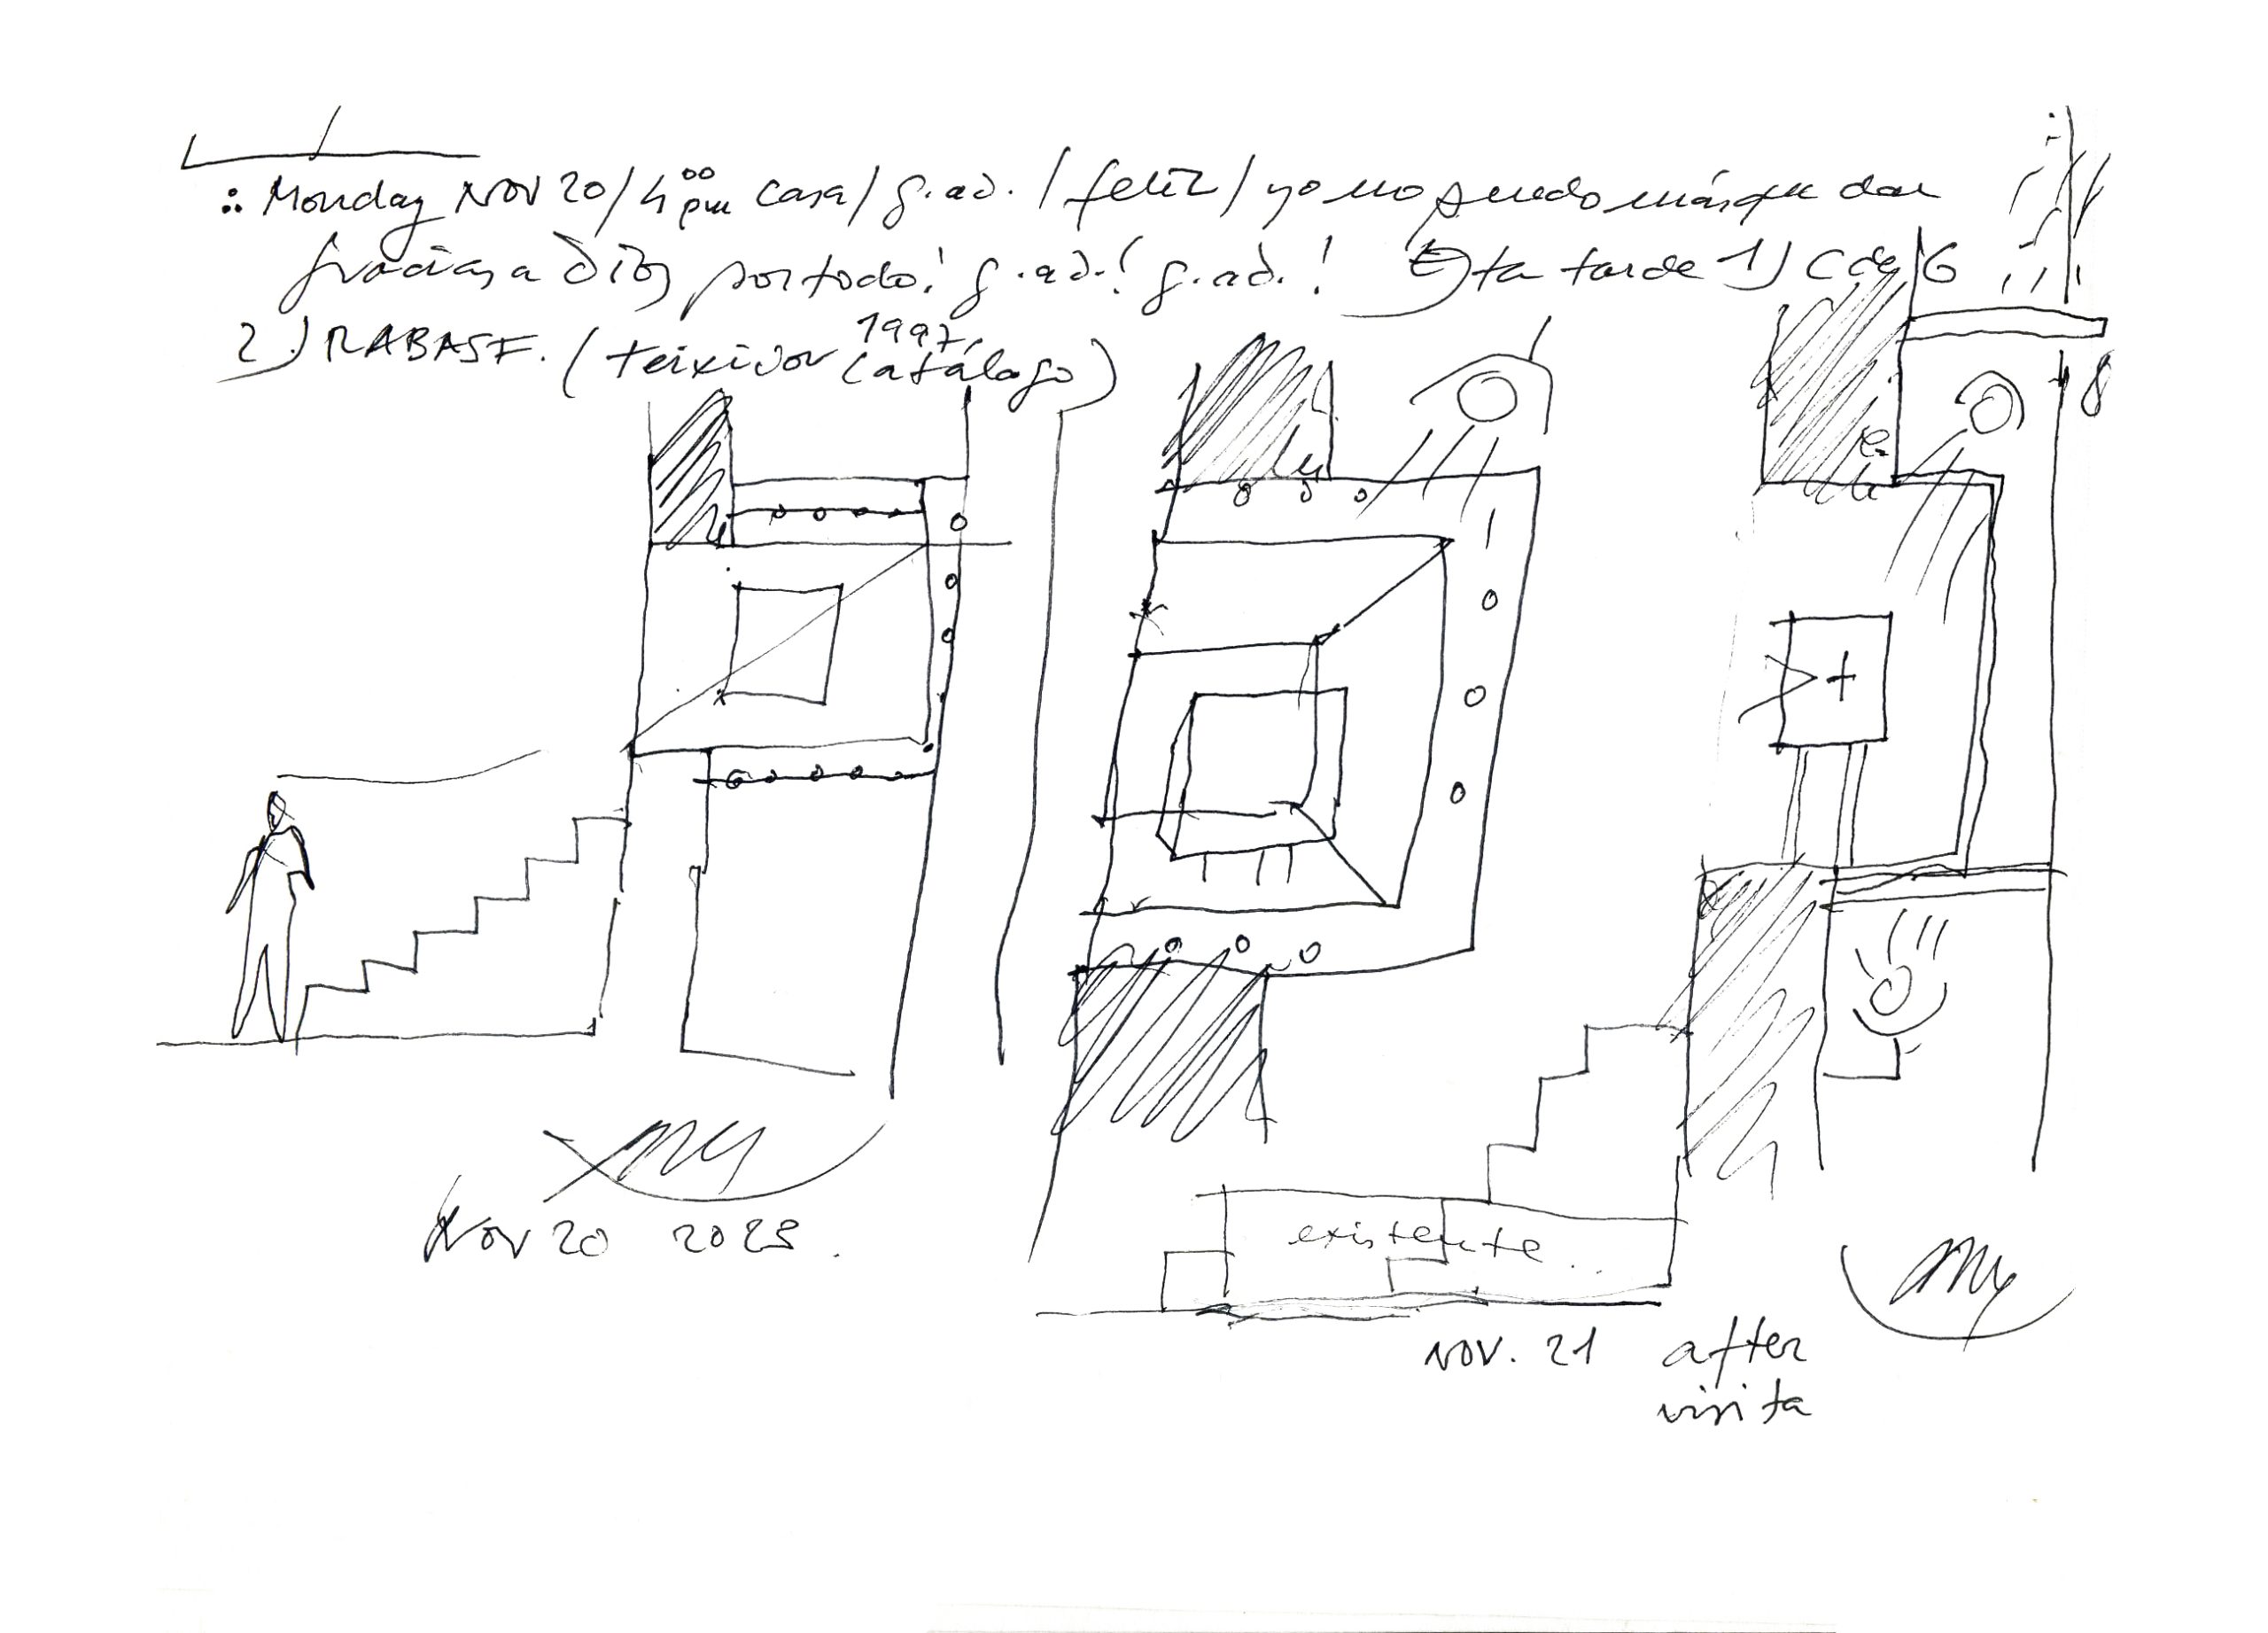 : Monday Nov 20/4:00 pm casa/g.a.d./feliz/yo no puedo más que dar
gracias a Dios por todo! g.a.d.! g.a.d.! Esta tarde 1) C de G
2) RABASF. (teixidor 1997 catálogo)
+8
Nov 20 2023.
existente..
NOV. 21 after
visita